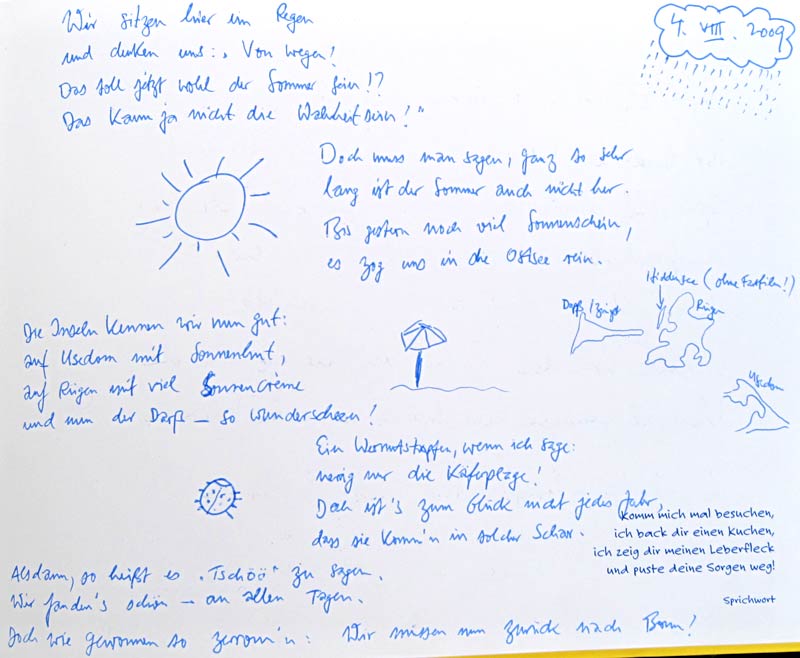 4. VIII. 2009
Wir sitzen hier im Regen
und denken uns: „Von wegen!
Das soll jetzt wohl der Sommer sein!?
Das kann ja nicht die Wahrheit sein!"
Doch muss man sagen, ganz so sehr
lang ist der Sommer auch nicht her.
Bis gestern noch viel Sonnenschein,
es zog uns in die Ostsee rein.
Hiddensee (ohne Farfilm!)
Darß/Zingst
Rügen
Usedom
Die Inseln kennen wir nun gut:
auf Usedom mit Sonnenhut,
auf Rügen mit viel Sonnencrème
und nun der Darß – so wunderscheen!
Ein Wermutstropfen, wenn ich sage:
nervig nur die Käferplage!
Doch ist's zum Glück nicht jedes Jahr,
dass sie komm'n in solcher Schar.
komm mich mal besuchen,
ich back dir einen Kuchen,
ich zeig dir meinen Leberfleck
und puste deine Sorgen weg!
Sprichwort
Alsdann, so heißt es „Tschöö" zu sagen.
Wir fanden's schön – an allen Tagen.
Doch wie gewonnen so zerronn'n: Wir müssen nun zurück nach Bonn!